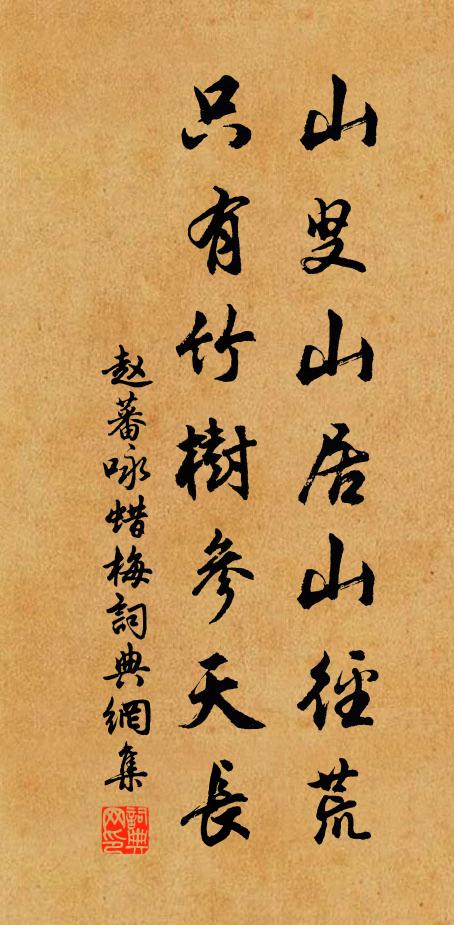 山叟山居山径荒
只有竹樹參天長
赵蕃咏蜡梅詞典網集
詞典网印